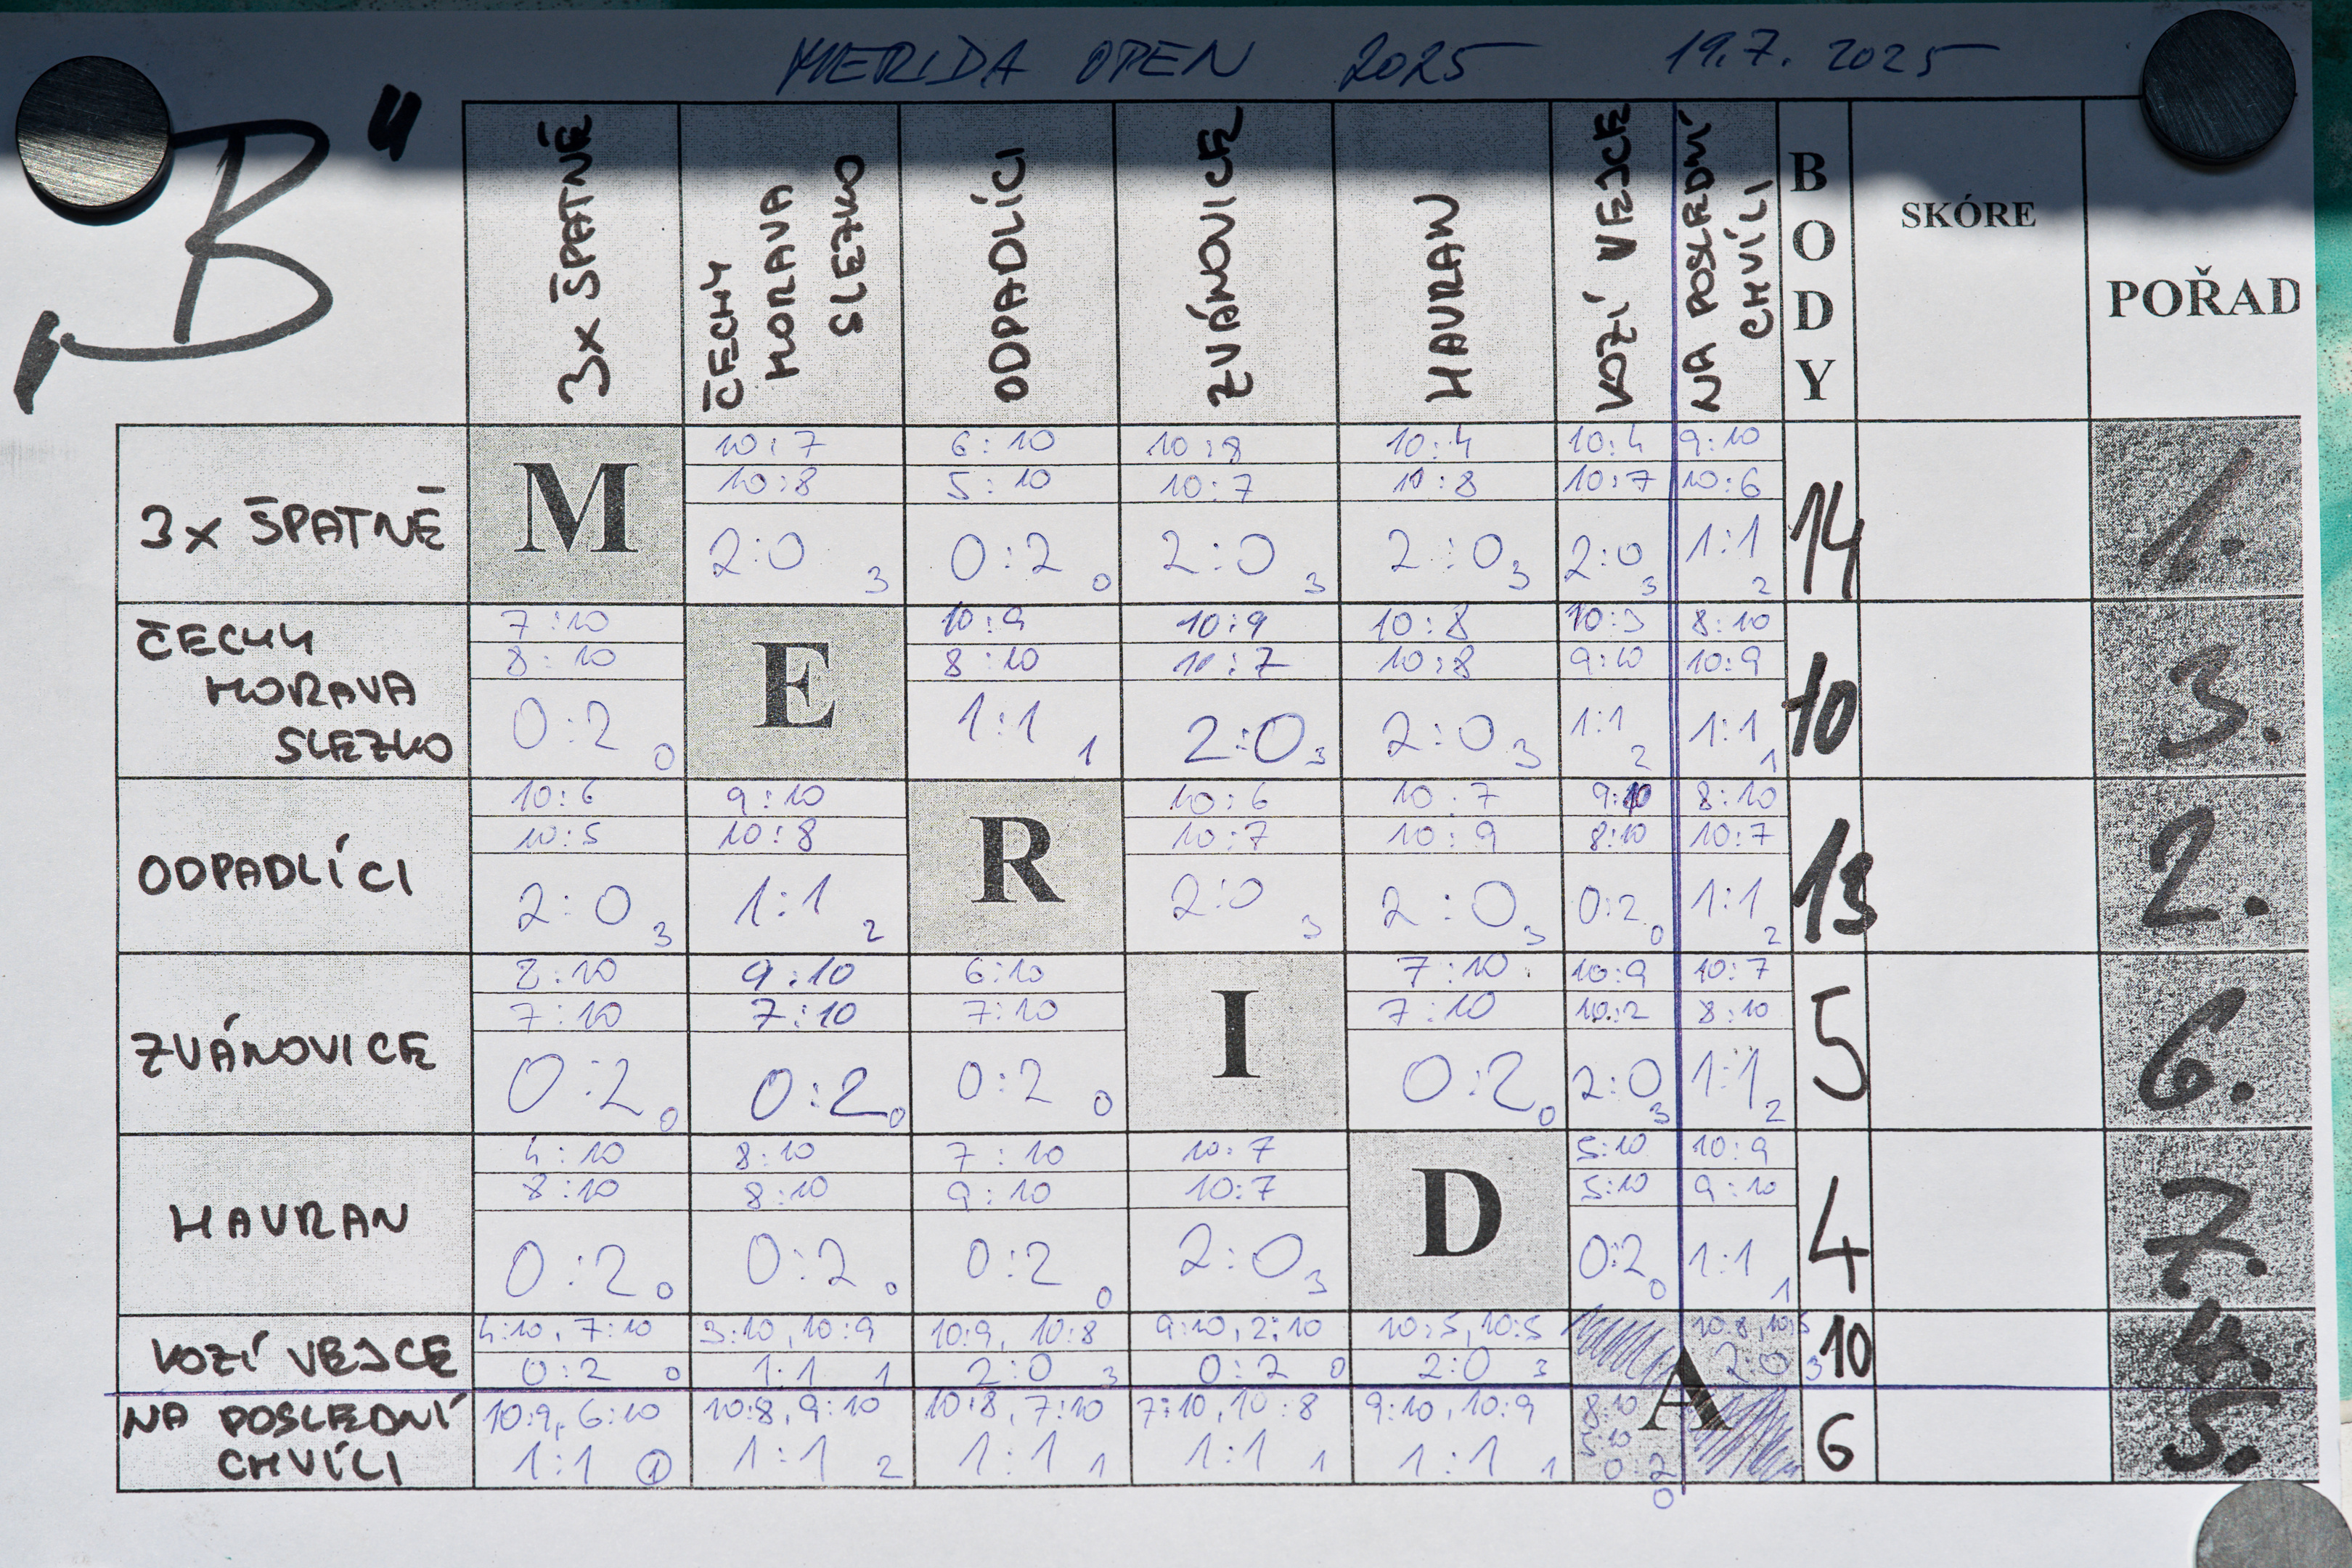 MERIDA OPEN 2025 19.7. 2025
„B"
3x ŠPATNĚ
ČECHY MORAVA SLEZKO
ODPADLÍCI
ZVÁNOVICE
HAVRAN
KOZÍ VEJCE
NA POSLEDNÍ CHVÍLI
BODY
SKÓRE
POŘAD
3x ŠPATNĚ
M
10:7 6:10 10:8 10:4 10:4 9:10
10:8 5:10 10:7 10:8 10:7 10:6
2:0 3 0:2 0 2:0 3 2:0 3 2:0 3 1:1 2
14
1.
ČECHY
MORAVA
SLEZKO
7:10
8:10
0:2 0
E
10:9 10:9 10:8 10:3 8:10
8:10 10:7 10:8 9:10 10:9
1:1 1 2:0 3 2:0 3 1:1 2 1:1 1
10
3.
ODPADLÍCI
10:6 9:10
10:5 10:8
2:0 3 1:1 2
R
10:6 10:7 9:10 8:10
10:7 10:9 8:10 10:7
2:0 3 2:0 3 0:2 0 1:1 2
13
2.
ZVÁNOVICE
8:10 9:10 6:10
7:10 7:10 7:10
0:2 0 0:2 0 0:2 0
I
7:10 10:9 10:7
7:10 10:2 8:10
0:2 0 2:0 3 1:1 2
5
6.
HAVRAN
4:10 8:10 7:10 10:7
8:10 8:10 9:10 10:7
0:2 0 0:2 0 0:2 0 2:0 3
D
5:10 10:9
5:10 9:10
0:2 0 1:1 1
4
7.
KOZÍ VEJCE
4:10, 7:10 3:10, 10:9 10:9, 10:8 9:10, 2:10 10:5, 10:5 10:8, 10:5
0:2 0 1:1 1 2:0 3 0:2 0 2:0 3 2:0 3
10
4.
A
NA POSLEDNÍ
CHVÍLI
10:9, 6:10 10:8, 9:10 10:8, 7:10 7:10, 10:8 9:10, 10:9 8:10
5:10
1:1 1 1:1 2 1:1 1 1:1 1 1:1 1 0:2
0
6
5.